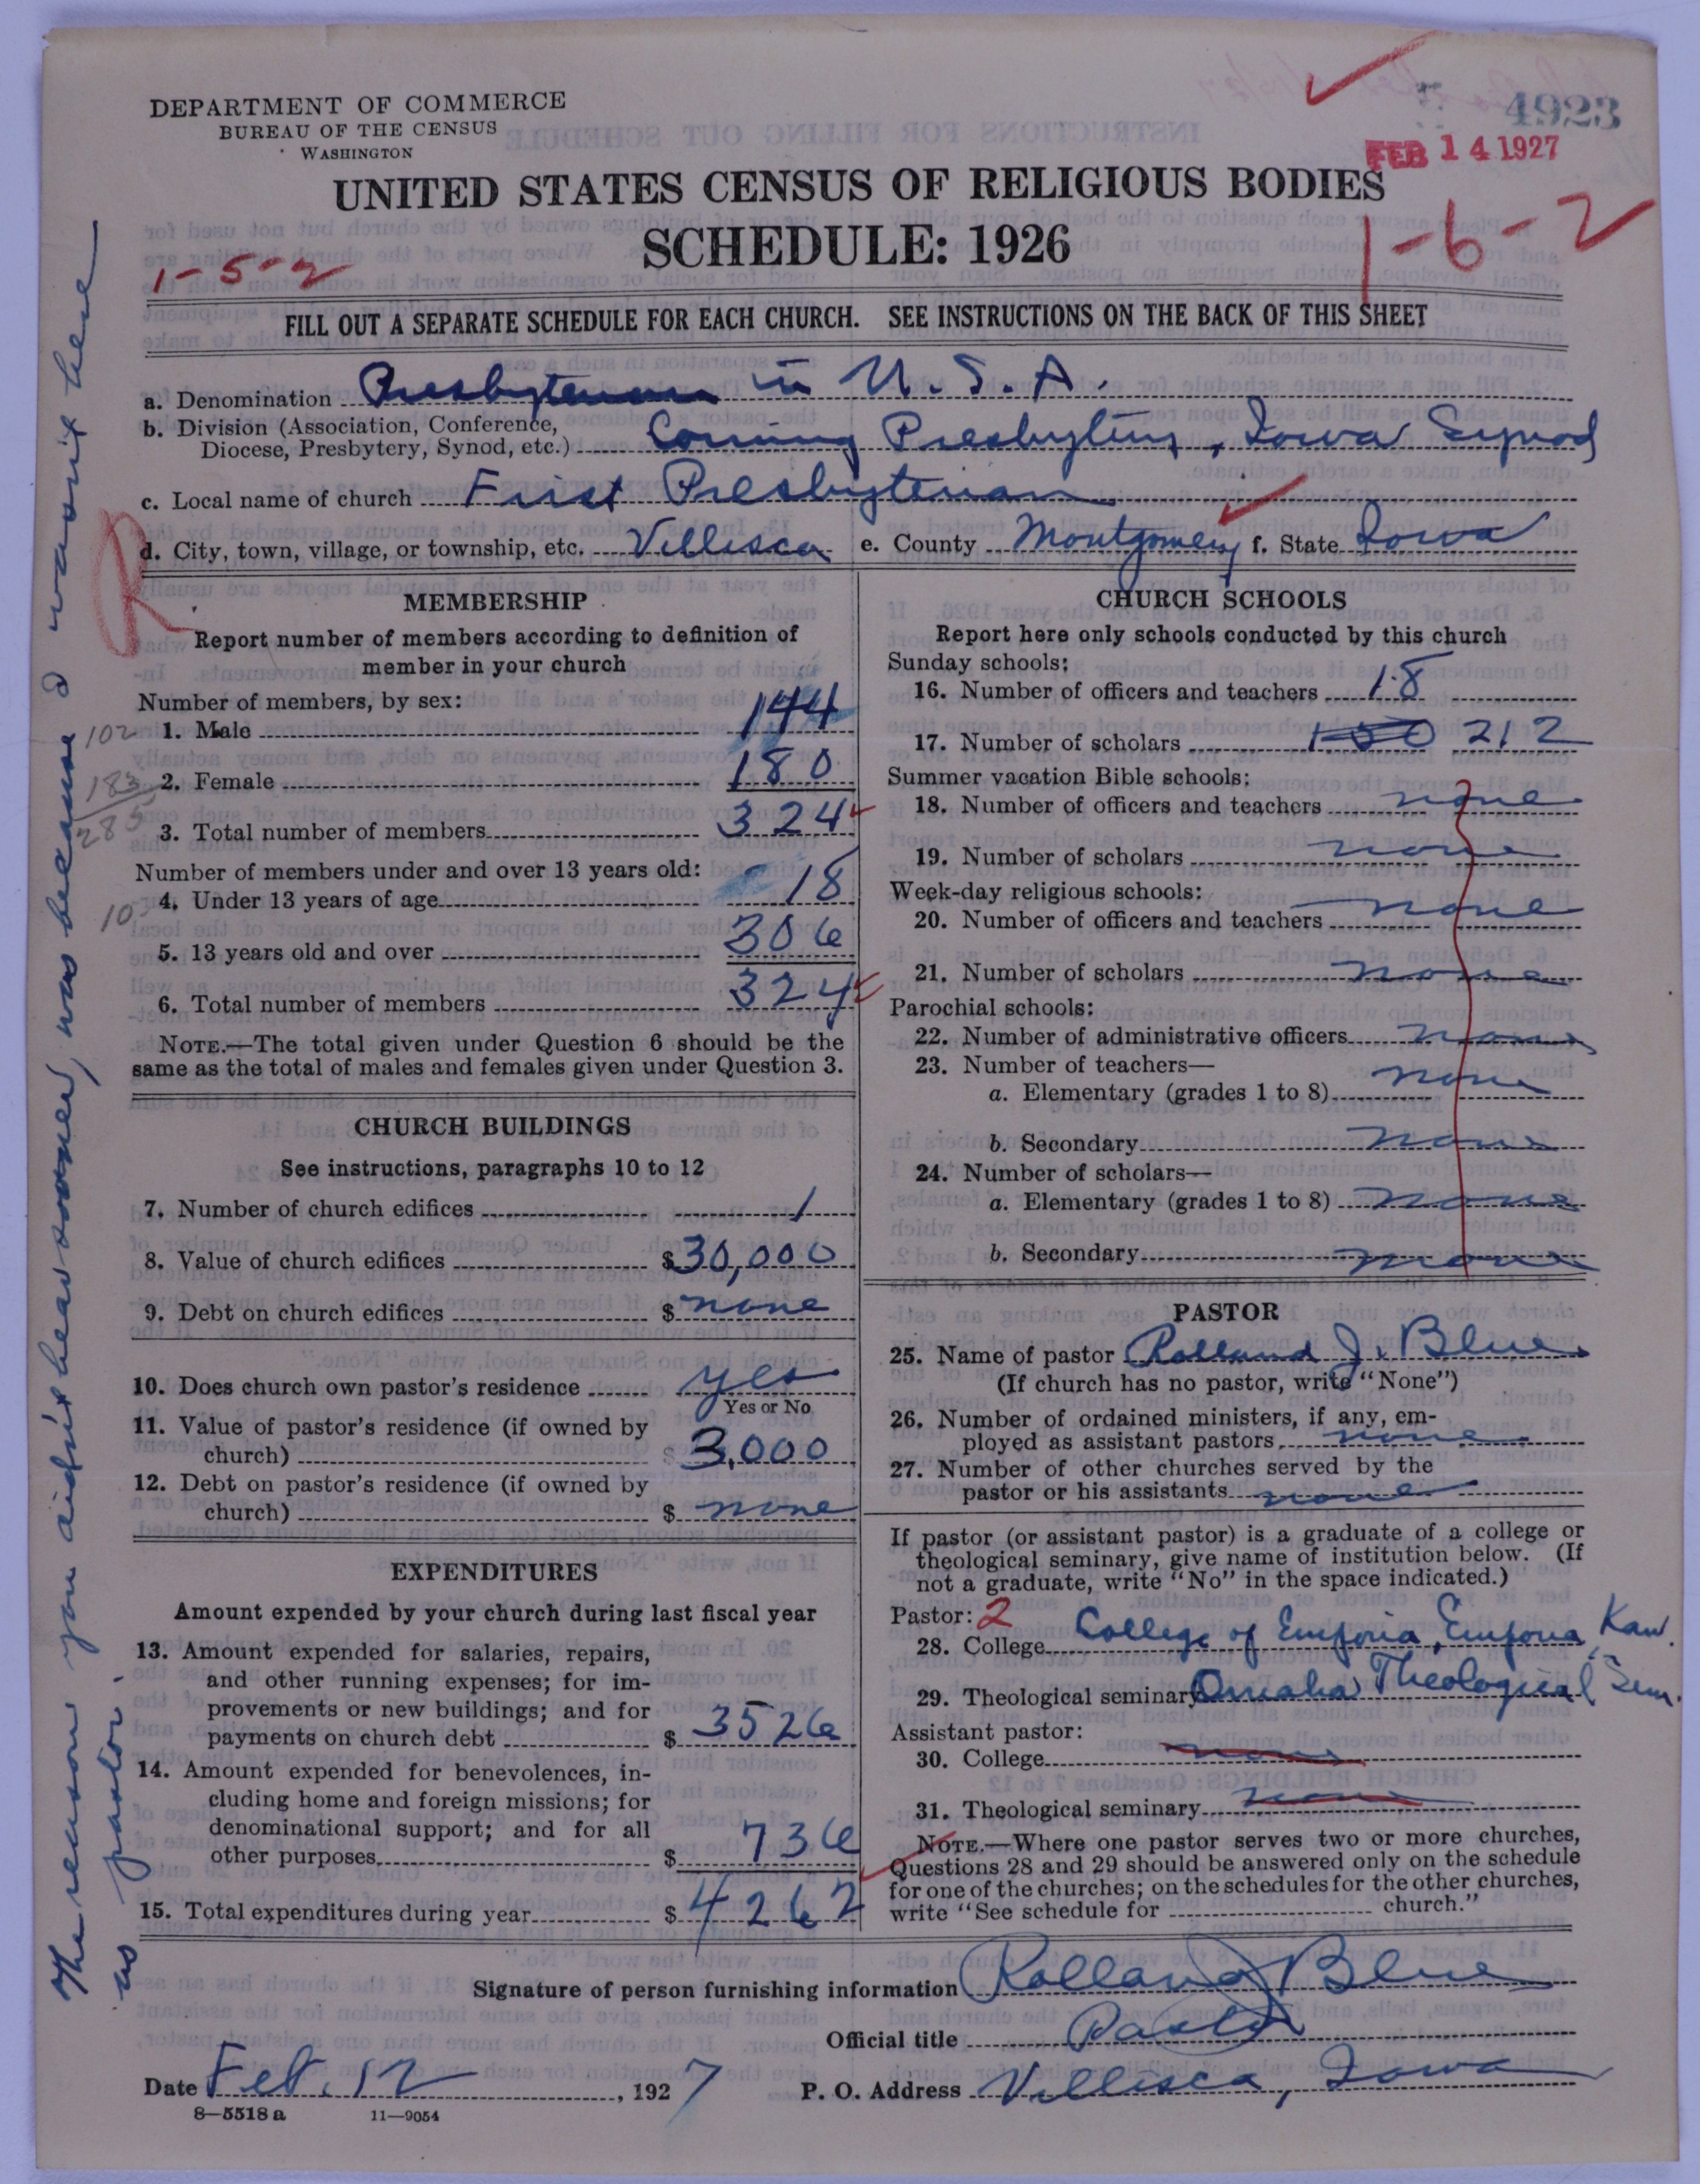 DEPARTMENT OF COMMERCE
BUREAU OF THE CENSUS
WASHINGTON
4923
FEB 14 1927
UNITED STATES CENSUS OF RELIGIOUS BODIES
SCHEDULE: 1926
1-5-2
1-6-2
FILL OUT A SEPARATE SCHEDULE FOR EACH CHURCH. SEE INSTRUCTIONS ON THE BACK OF THIS SHEET
a. Denomination Presbyterian in U.S.A.
b. Division (Association, Conference,
Diocese, Presbytery, Synod, etc.) Corning Presbytery, Iowa Synod
c. Local name of church First Presbyterian
d. City, town, village, or township, etc. Villisca e. County Montgomery f. State Iowa
R
MEMBERSHIP
Report number of members according to definition of
member in your church
Number of members, by sex:
102 1. Male 144
183 2. Female 180
285 3. Total number of members 324
Number of members under and over 13 years old:
10 4. Under 13 years of age 18
5. 13 years old and over 306
6. Total number of members 324
NOTE.—The total given under Question 6 should be the
same as the total of males and females given under Question 3.
CHURCH BUILDINGS
See instructions, paragraphs 10 to 12
7. Number of church edifices 1
8. Value of church edifices $30,000
9. Debt on church edifices $ none
10. Does church own pastor's residence yes
Yes or No
11. Value of pastor's residence (if owned by
church) $ 3,000
12. Debt on pastor's residence (if owned by
church) $ none
EXPENDITURES
Amount expended by your church during last fiscal year
13. Amount expended for salaries, repairs,
and other running expenses; for im-
provements or new buildings; and for
payments on church debt $ 3526
14. Amount expended for benevolences, in-
cluding home and foreign missions; for
denominational support; and for all
other purposes $ 736
15. Total expenditures during year $ 4262
CHURCH SCHOOLS
Report here only schools conducted by this church
Sunday schools:
16. Number of officers and teachers 18
17. Number of scholars 150 212
Summer vacation Bible schools:
18. Number of officers and teachers none
19. Number of scholars none
Week-day religious schools:
20. Number of officers and teachers none
21. Number of scholars none
Parochial schools:
22. Number of administrative officers none
23. Number of teachers—
a. Elementary (grades 1 to 8) none
b. Secondary none
24. Number of scholars—
a. Elementary (grades 1 to 8) none
b. Secondary none
PASTOR
25. Name of pastor Rolland J. Blue
(If church has no pastor, write "None")
26. Number of ordained ministers, if any, em-
ployed as assistant pastors none
27. Number of other churches served by the
pastor or his assistants none
If pastor (or assistant pastor) is a graduate of a college or
theological seminary, give name of institution below. (If
not a graduate, write "No" in the space indicated.)
Pastor: 2
28. College College of Emporia, Emporia, Kan.
29. Theological seminary Omaha Theological Sem.
Assistant pastor:
30. College none
31. Theological seminary none
NOTE.—Where one pastor serves two or more churches,
Questions 28 and 29 should be answered only on the schedule
for one of the churches; on the schedules for the other churches,
write "See schedule for church."
Signature of person furnishing information Rolland J Blue
Official title Pastor
Date Feb. 12, 1927 P. O. Address Villisca, Iowa
8—5518 a 11—9054
The reason you didn't hear sooner, was because I wasn't here
as pastor.